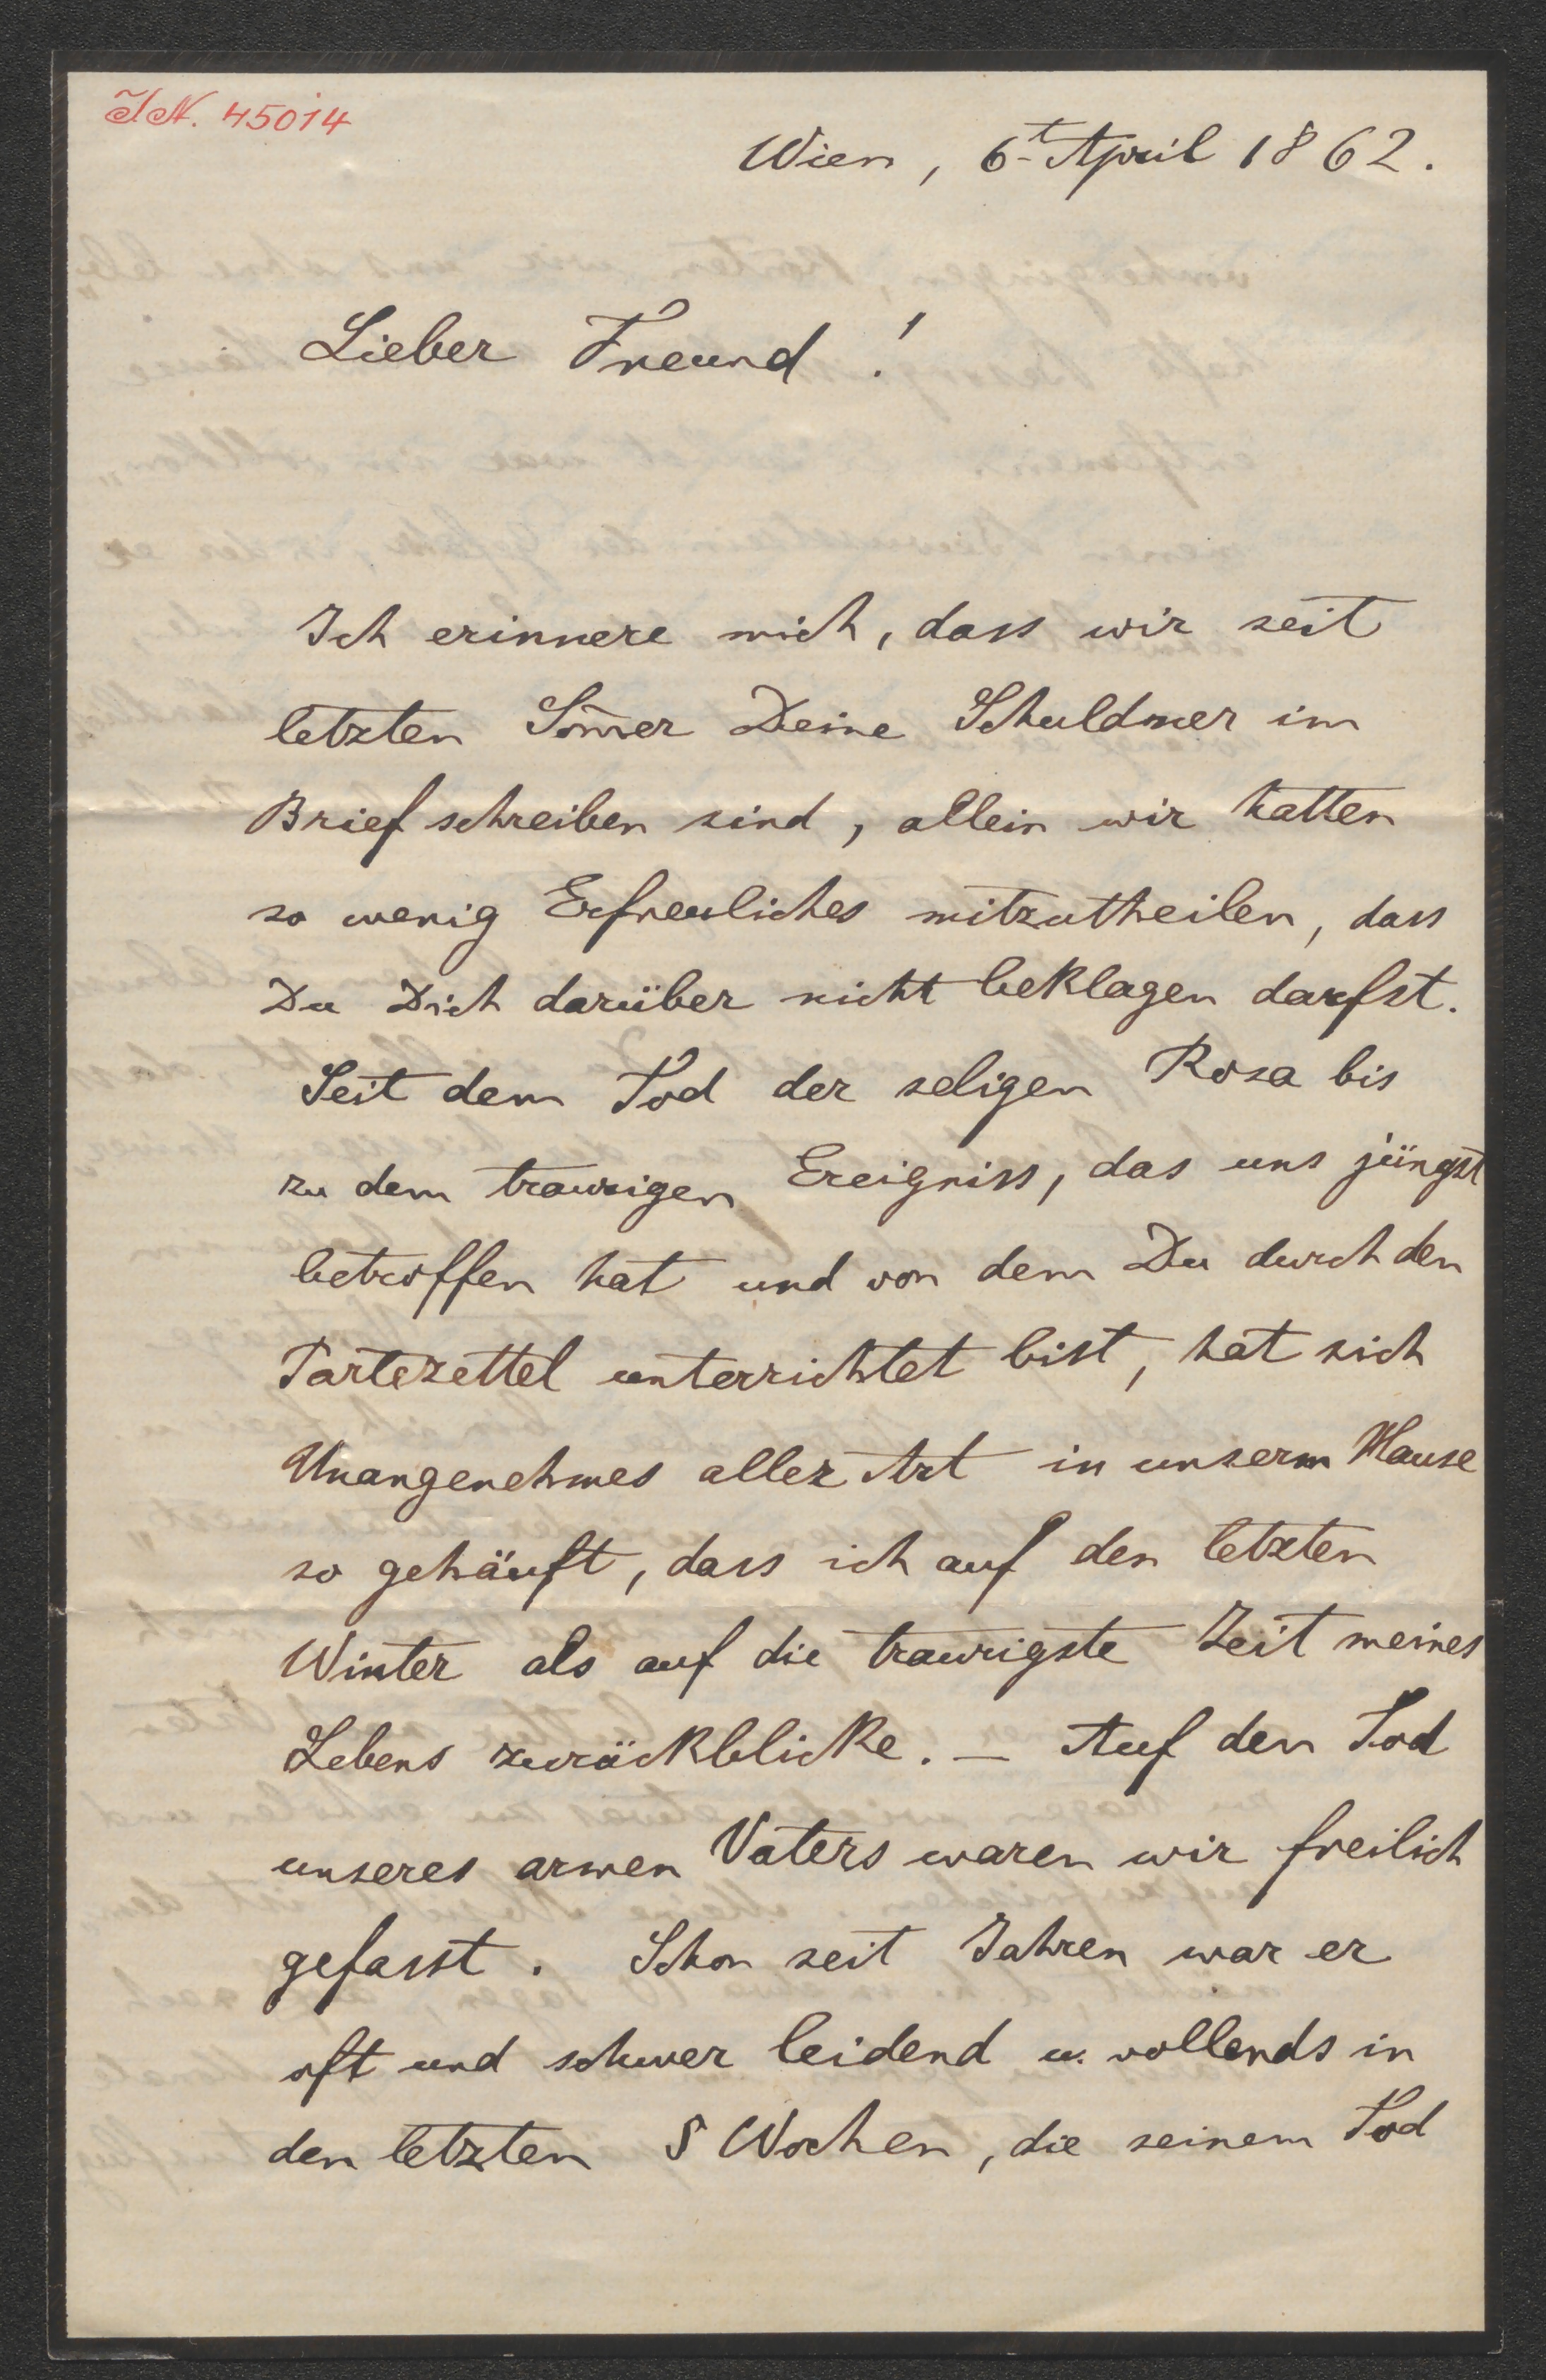 I.N. 45014
Wien, 6t April 1862.
Lieber Freund!
Ich erinnere mich, dass wir seit
letzten Som̅er Deine Schuldner im
Briefschreiben sind, allein wir hatten
so wenig Erfreuliches mitzutheilen, dass
Du Dich darüber nicht beklagen darfst.
Seit dem Tod der seligen Rosa bis
zu dem traurigen Ereigniss, das uns jüngst
betroffen hat und von dem Du durch den
Partezettel unterrichtet bist, hat sich
Unangenehmes aller Art in unserm Hause
so gehäuft, dass ich auf den letzten
Winter als auf die traurigste Zeit meines
Lebens zurückblicke. — Auf den Tod
unseres armen Vaters waren wir freilich
gefasst. Schon seit Jahren war er
oft und schwer leidend u. vollends in
den letzten Wochen, die seinem Tod